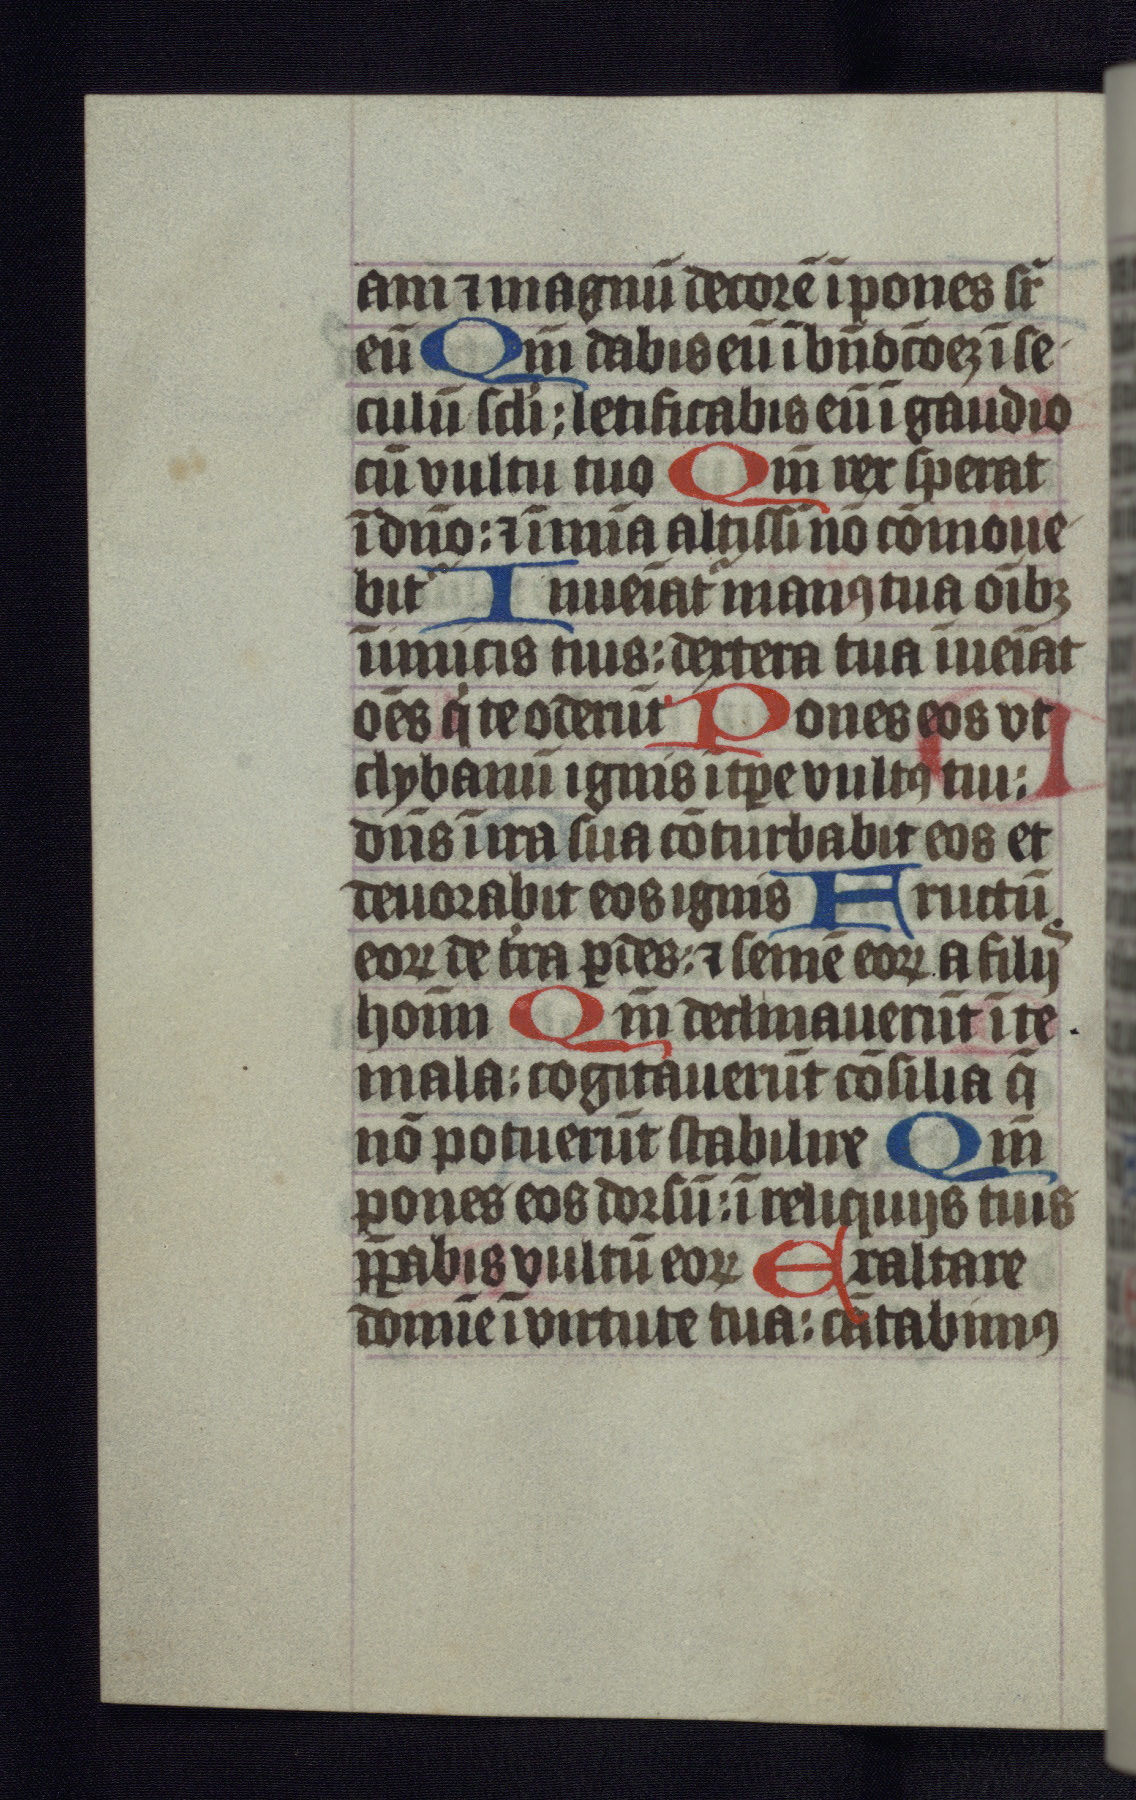 am ⁊ magnū decorē īpones sr̄
eū Qm̄ dabis eū ī bn̄dc̄oeꝫ ī se-
culū scl̄i; letificabis eū ī gaudio
cū vultu tuo Qm̄ rex sperat
ī dn̄o: ⁊ ī mīa altissī nō cōmoue-
bit᷑ Inueīat᷑ manꝰ tua oībꝫ
īimicis tuis: dextera tua īueīat
oēs qͥ te oderūt Pones eos vt
clybanū ignis ī tp̄e vultꝰ tui:
dn̄s ī ira sua cōturbabit eos et
deuorabit eos ignis Fructū
eoꝝ de t̓ra ꝑdes: ⁊ semē eoꝝ a filijs
hoīm Qm̄ declinauerūt ī te
mala: cogitauerūt cōsilia q̄
nō potuerūt stabilire Qm̄
pones eos dorsū: ī reliquijs tuis
p̄ꝑabis vultū eoꝝ Exaltare
domīe ī virtute tua: cātabimꝰ